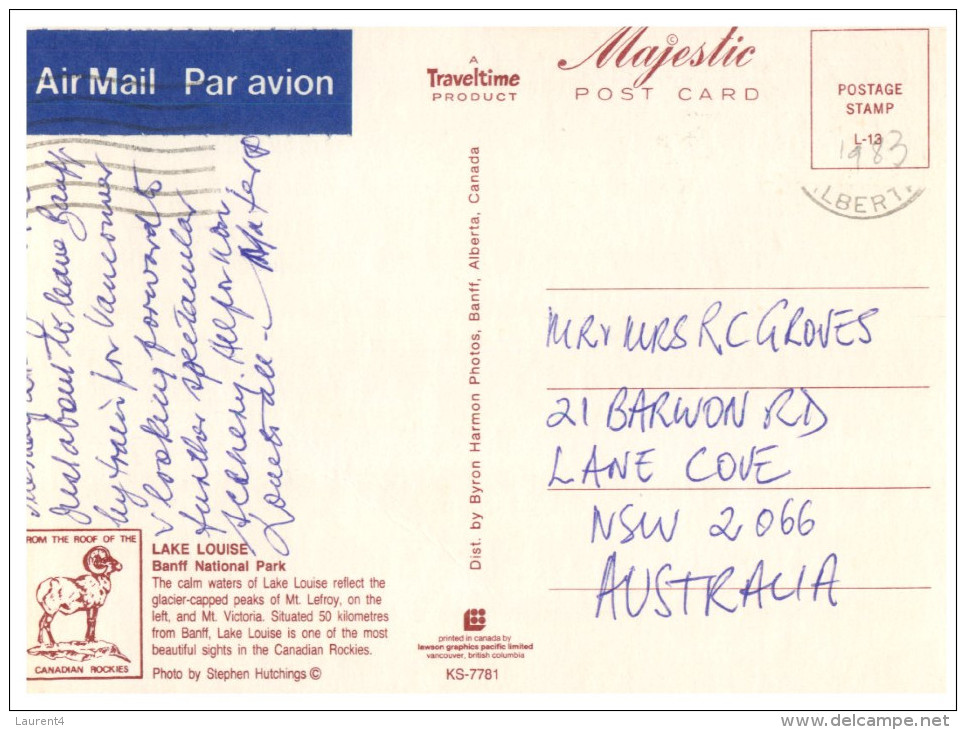 Air Mail Par avion
A
Traveltime
PRODUCT
Majestic
©
POST CARD
POSTAGE
STAMP
L-13
1983
LBERT
Just about to leave Banff
by train for Vancouver
& looking forward to
further spectacular
scenery. All for now
Love to all –
Dist. by Byron Harmon Photos, Banff, Alberta, Canada
MR & MRS R C GROVES
21 BARWON RD
LANE COVE
NSW 2066
AUSTRALIA
ROM THE ROOF OF THE
CANADIAN ROCKIES
LAKE LOUISE
Banff National Park
The calm waters of Lake Louise reflect the
glacier-capped peaks of Mt. Lefroy, on the
left, and Mt. Victoria. Situated 50 kilometres
from Banff, Lake Louise is one of the most
beautiful sights in the Canadian Rockies.
Photo by Stephen Hutchings ©
printed in canada by
lawson graphics pacific limited
vancouver, british columbia
KS-7781
Laurent4
www.delcampe.net